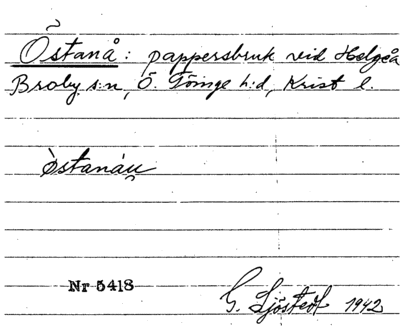 Östanå: pappersbruk vid Helgeå
Broby s:n, Ö. Göinge h:d, Krist l.
Nr 5418
G. Sjöstedt 1942